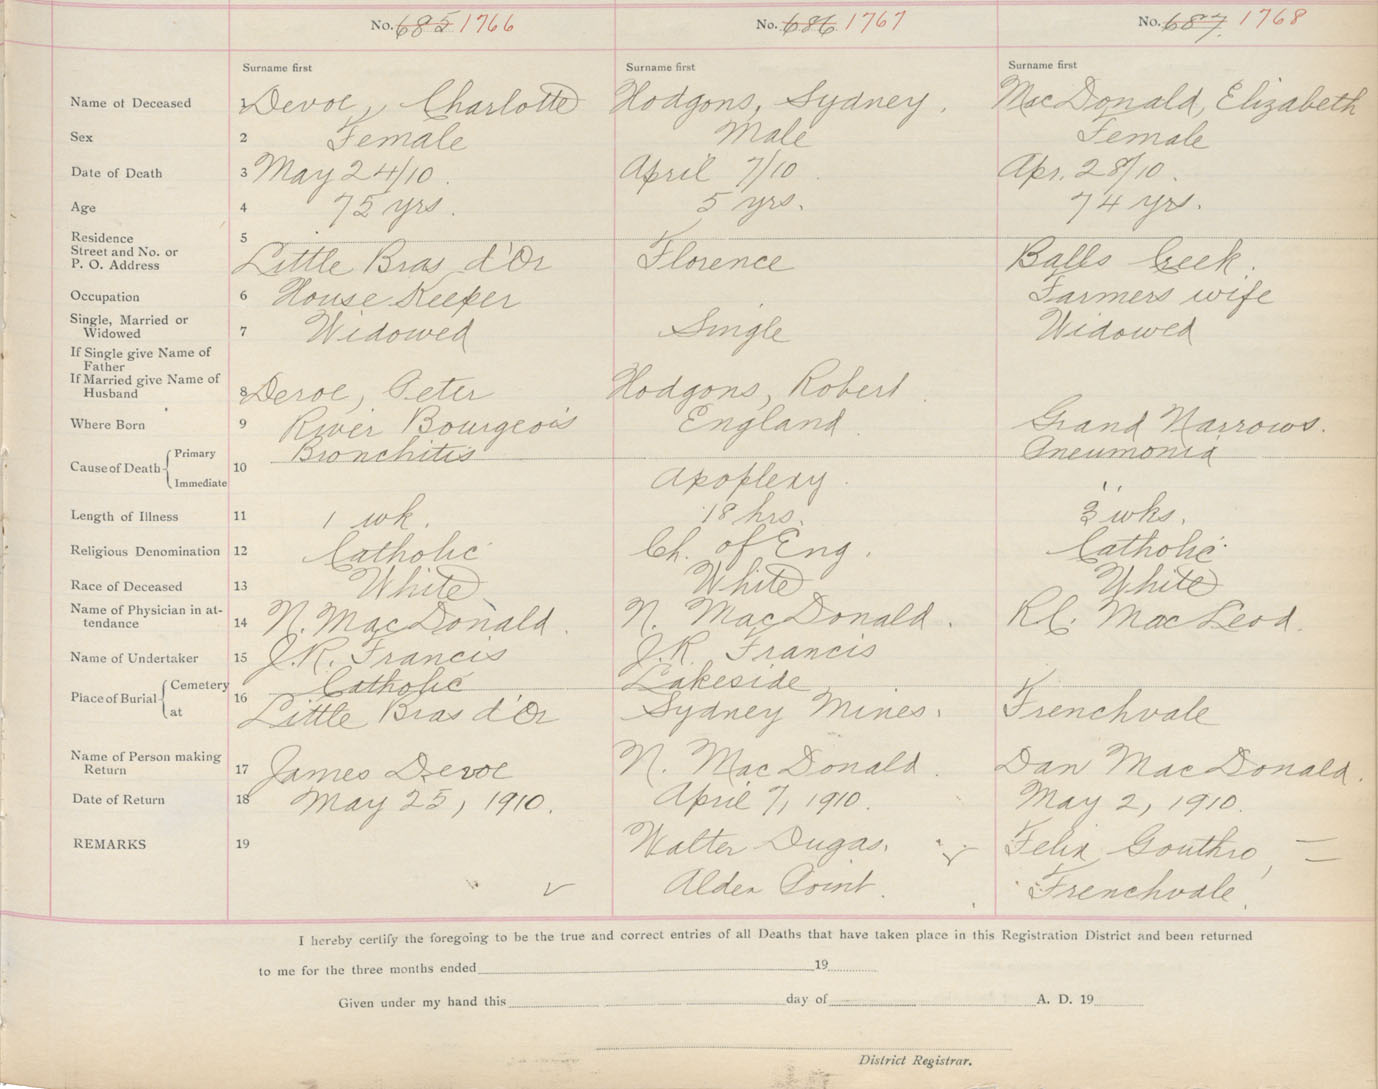 No. 685 1766 No. 686 1767 No. 687 1768
Surname first Surname first Surname first
Name of Deceased 1 Devoe, Charlotte Hodgons, Sydney. MacDonald, Elizabeth
Sex 2 Female Male Female
Date of Death 3 May 24/10. April 7/10. Apr. 28/10.
Age 4 75 yrs. 5 yrs. 74 yrs.
Residence 5
Street and No. or
P. O. Address Little Bras d'Or Florence Balls Creek.
Occupation 6 House Keeper Farmers wife
Single, Married or
Widowed 7 Widowed Single Widowed
If Single give Name of
Father
If Married give Name of
Husband 8 Devoe, Peter Hodgons, Robert.
Where Born 9 River Bourgeois England. Grand Narrows.
Cause of Death { Primary 10 Bronchitis Pneumonia
Immediate Apoplexy. "
Length of Illness 11 1 wk. 18 hrs. 3 wks.
Religious Denomination 12 Catholic Ch. of Eng. Catholic
Race of Deceased 13 White White White
Name of Physician in at-
tendance 14 N. MacDonald. N. MacDonald. R.C. MacLeod.
Name of Undertaker 15 J.R. Francis J.R. Francis
Place of Burial { Cemetery 16 Catholic Lakeside
at Little Bras d'Or Sydney Mines. Frenchvale
Name of Person making
Return 17 James Devoe N. MacDonald. Dan MacDonald.
Date of Return 18 May 25, 1910. April 7, 1910. May 2, 1910.
REMARKS 19 Walter Dugas. Felix Gouthro,
Alder Point. Frenchvale.
I hereby certify the foregoing to be the true and correct entries of all Deaths that have taken place in this Registration District and been returned
to me for the three months ended 19
Given under my hand this day of A. D. 19
District Registrar.